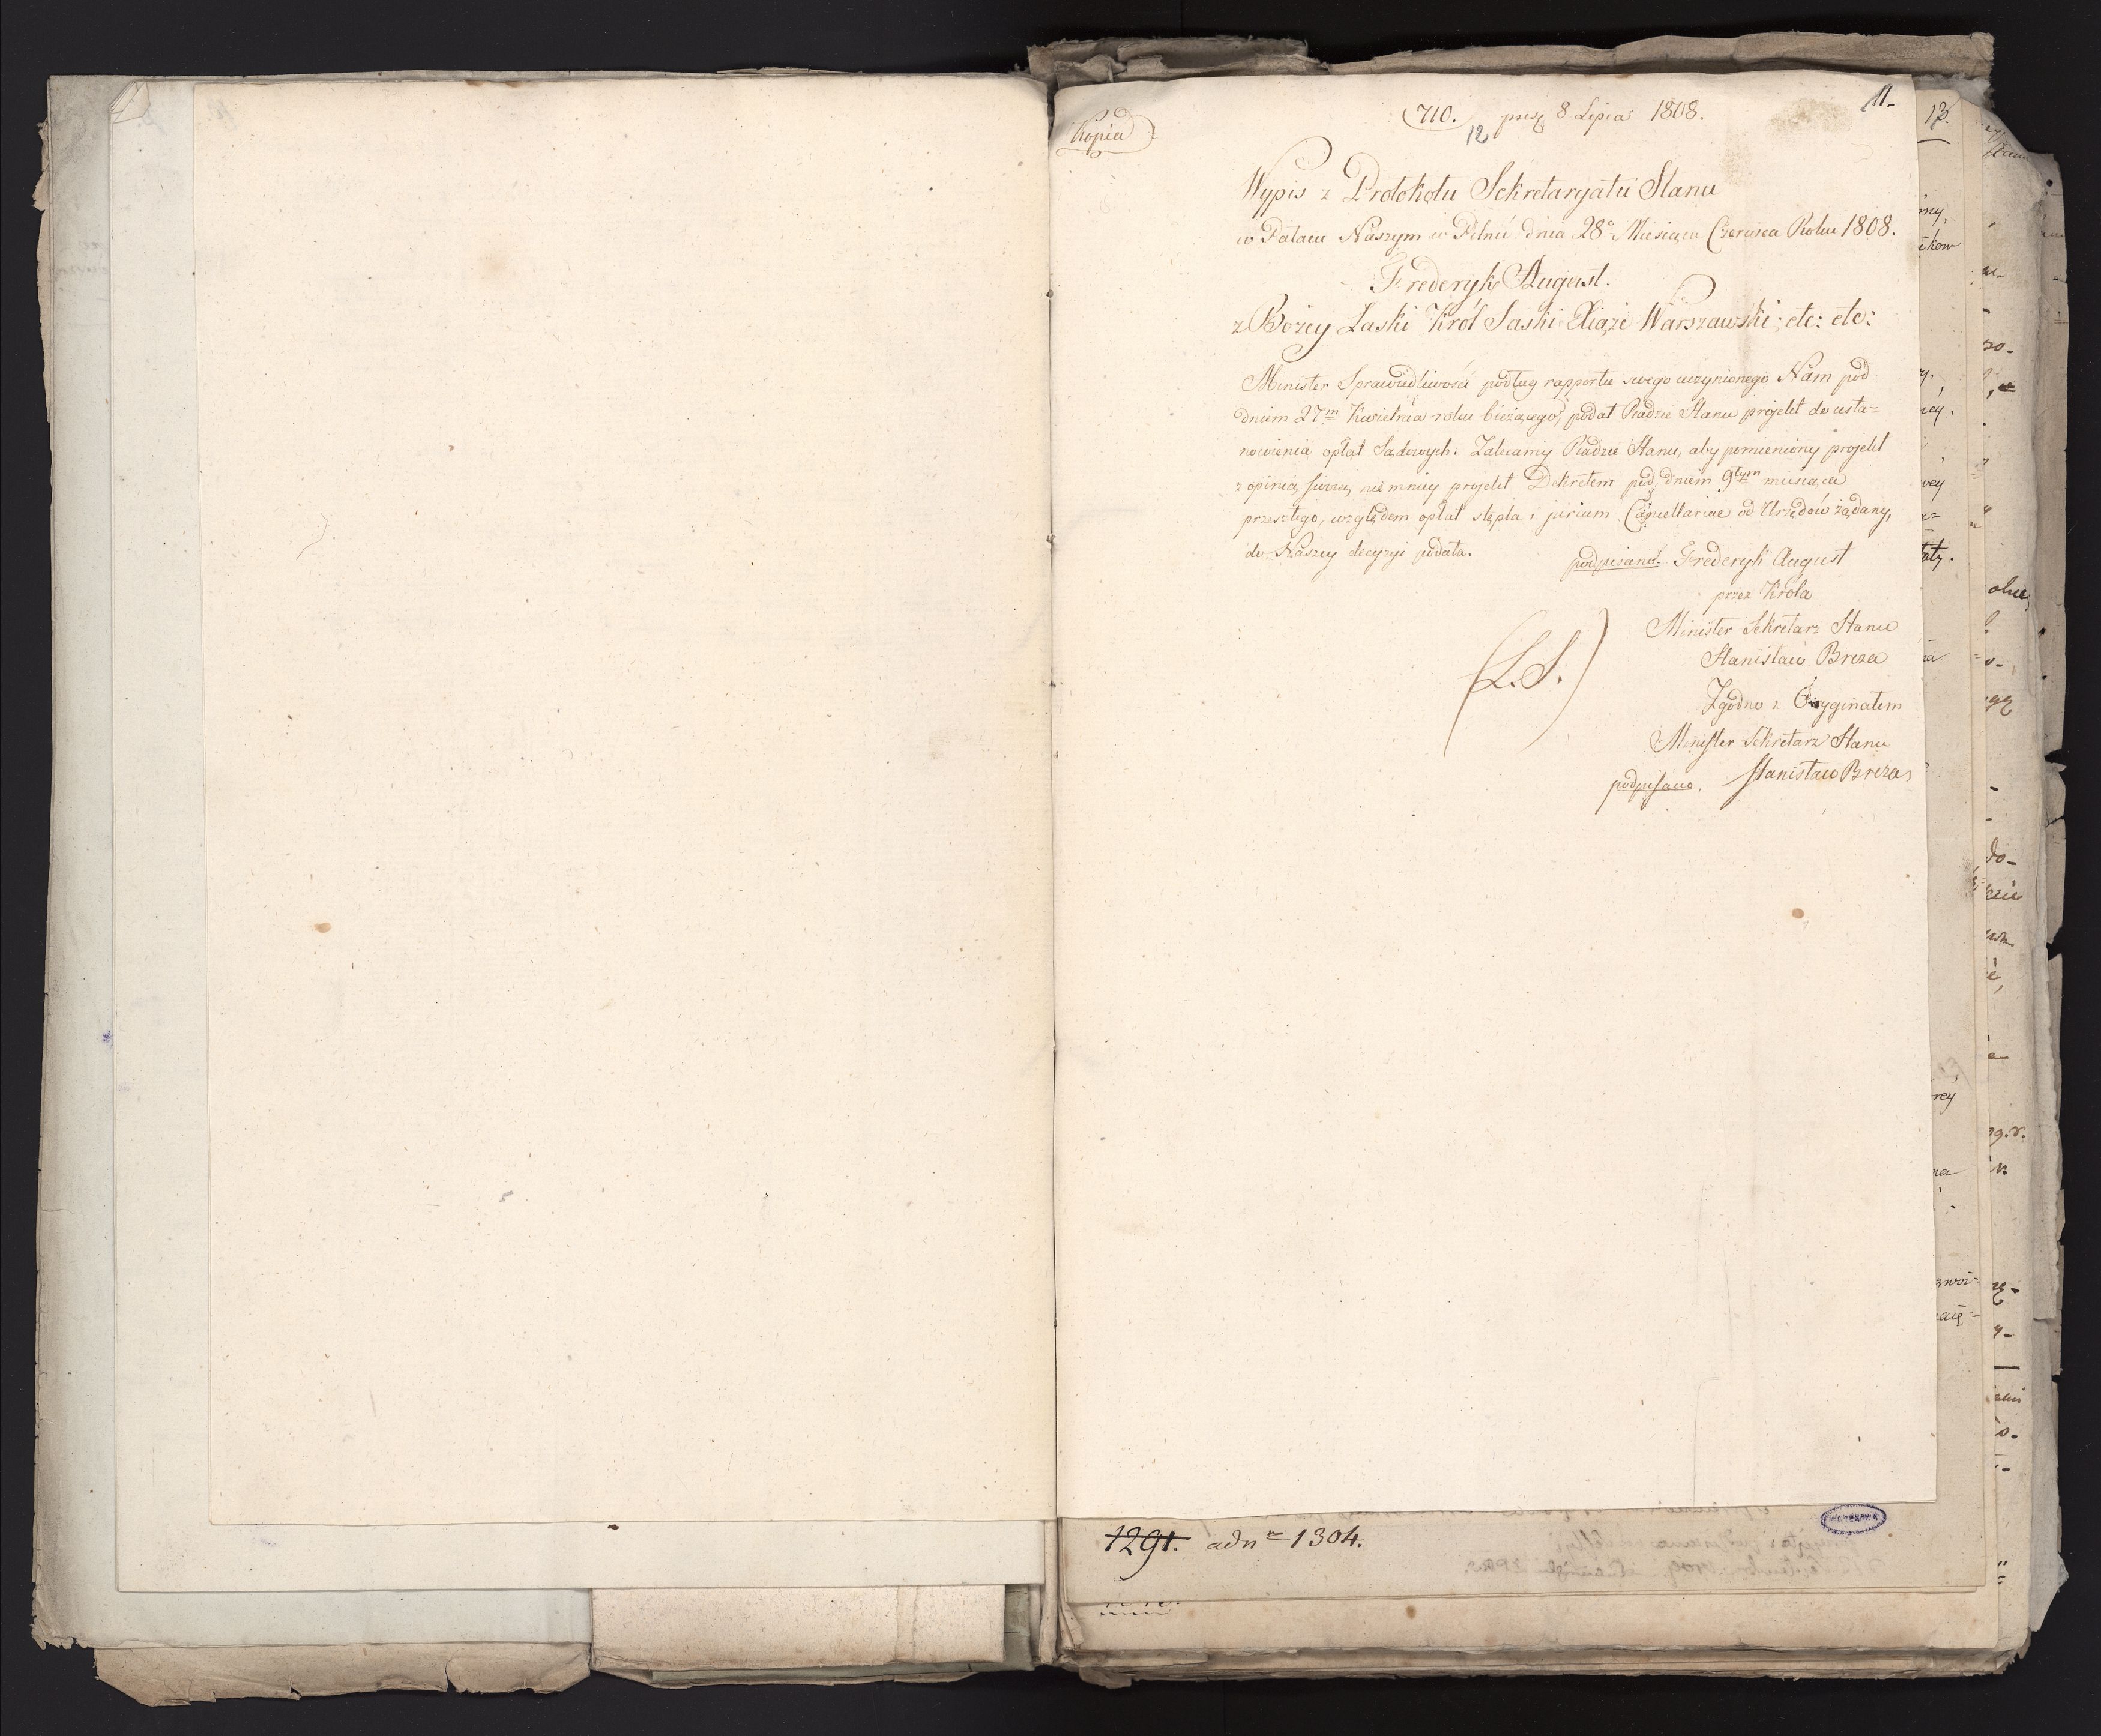 Kopia
710. prez 8 Lipca 1808.
11.
12
Wypis z Protokołu Sekretaryatu Stanu
w Pałacu Naszym w Pilnú dnia 28o Miesiąca Czerwca Roku 1808.
Frederyk August.
z Bożey Łaski Król Saski Xiąże Warszawski; etc: etc:
Minister Sprawiedliwości podług rapportu swego uczynionego Nam pod
dniem 27m Kwietnia roku bieżącego, podał Radzie Stanu projekt do usta=
nowienia opłat Sądowych. Zalecamy Radzie Stanu, aby pomieniony projekt
z opinią swoią, nie mniey projekt Dekretem pod dniem 9tym miesiąca
przeszłego, względem opłat stępla i jurium Cancellariae od Urzędów żądany,
do Naszey decyzyi podała.
podpisano Frederyk August
przez Króla
Minister Sekretarz Stanu
Stanisław Breza
(L.S.)
Zgodno z Oryginałem
Minister Sekretarz Stanu
podpisano. Stanisław Breza
1291. adn 1304.
13.